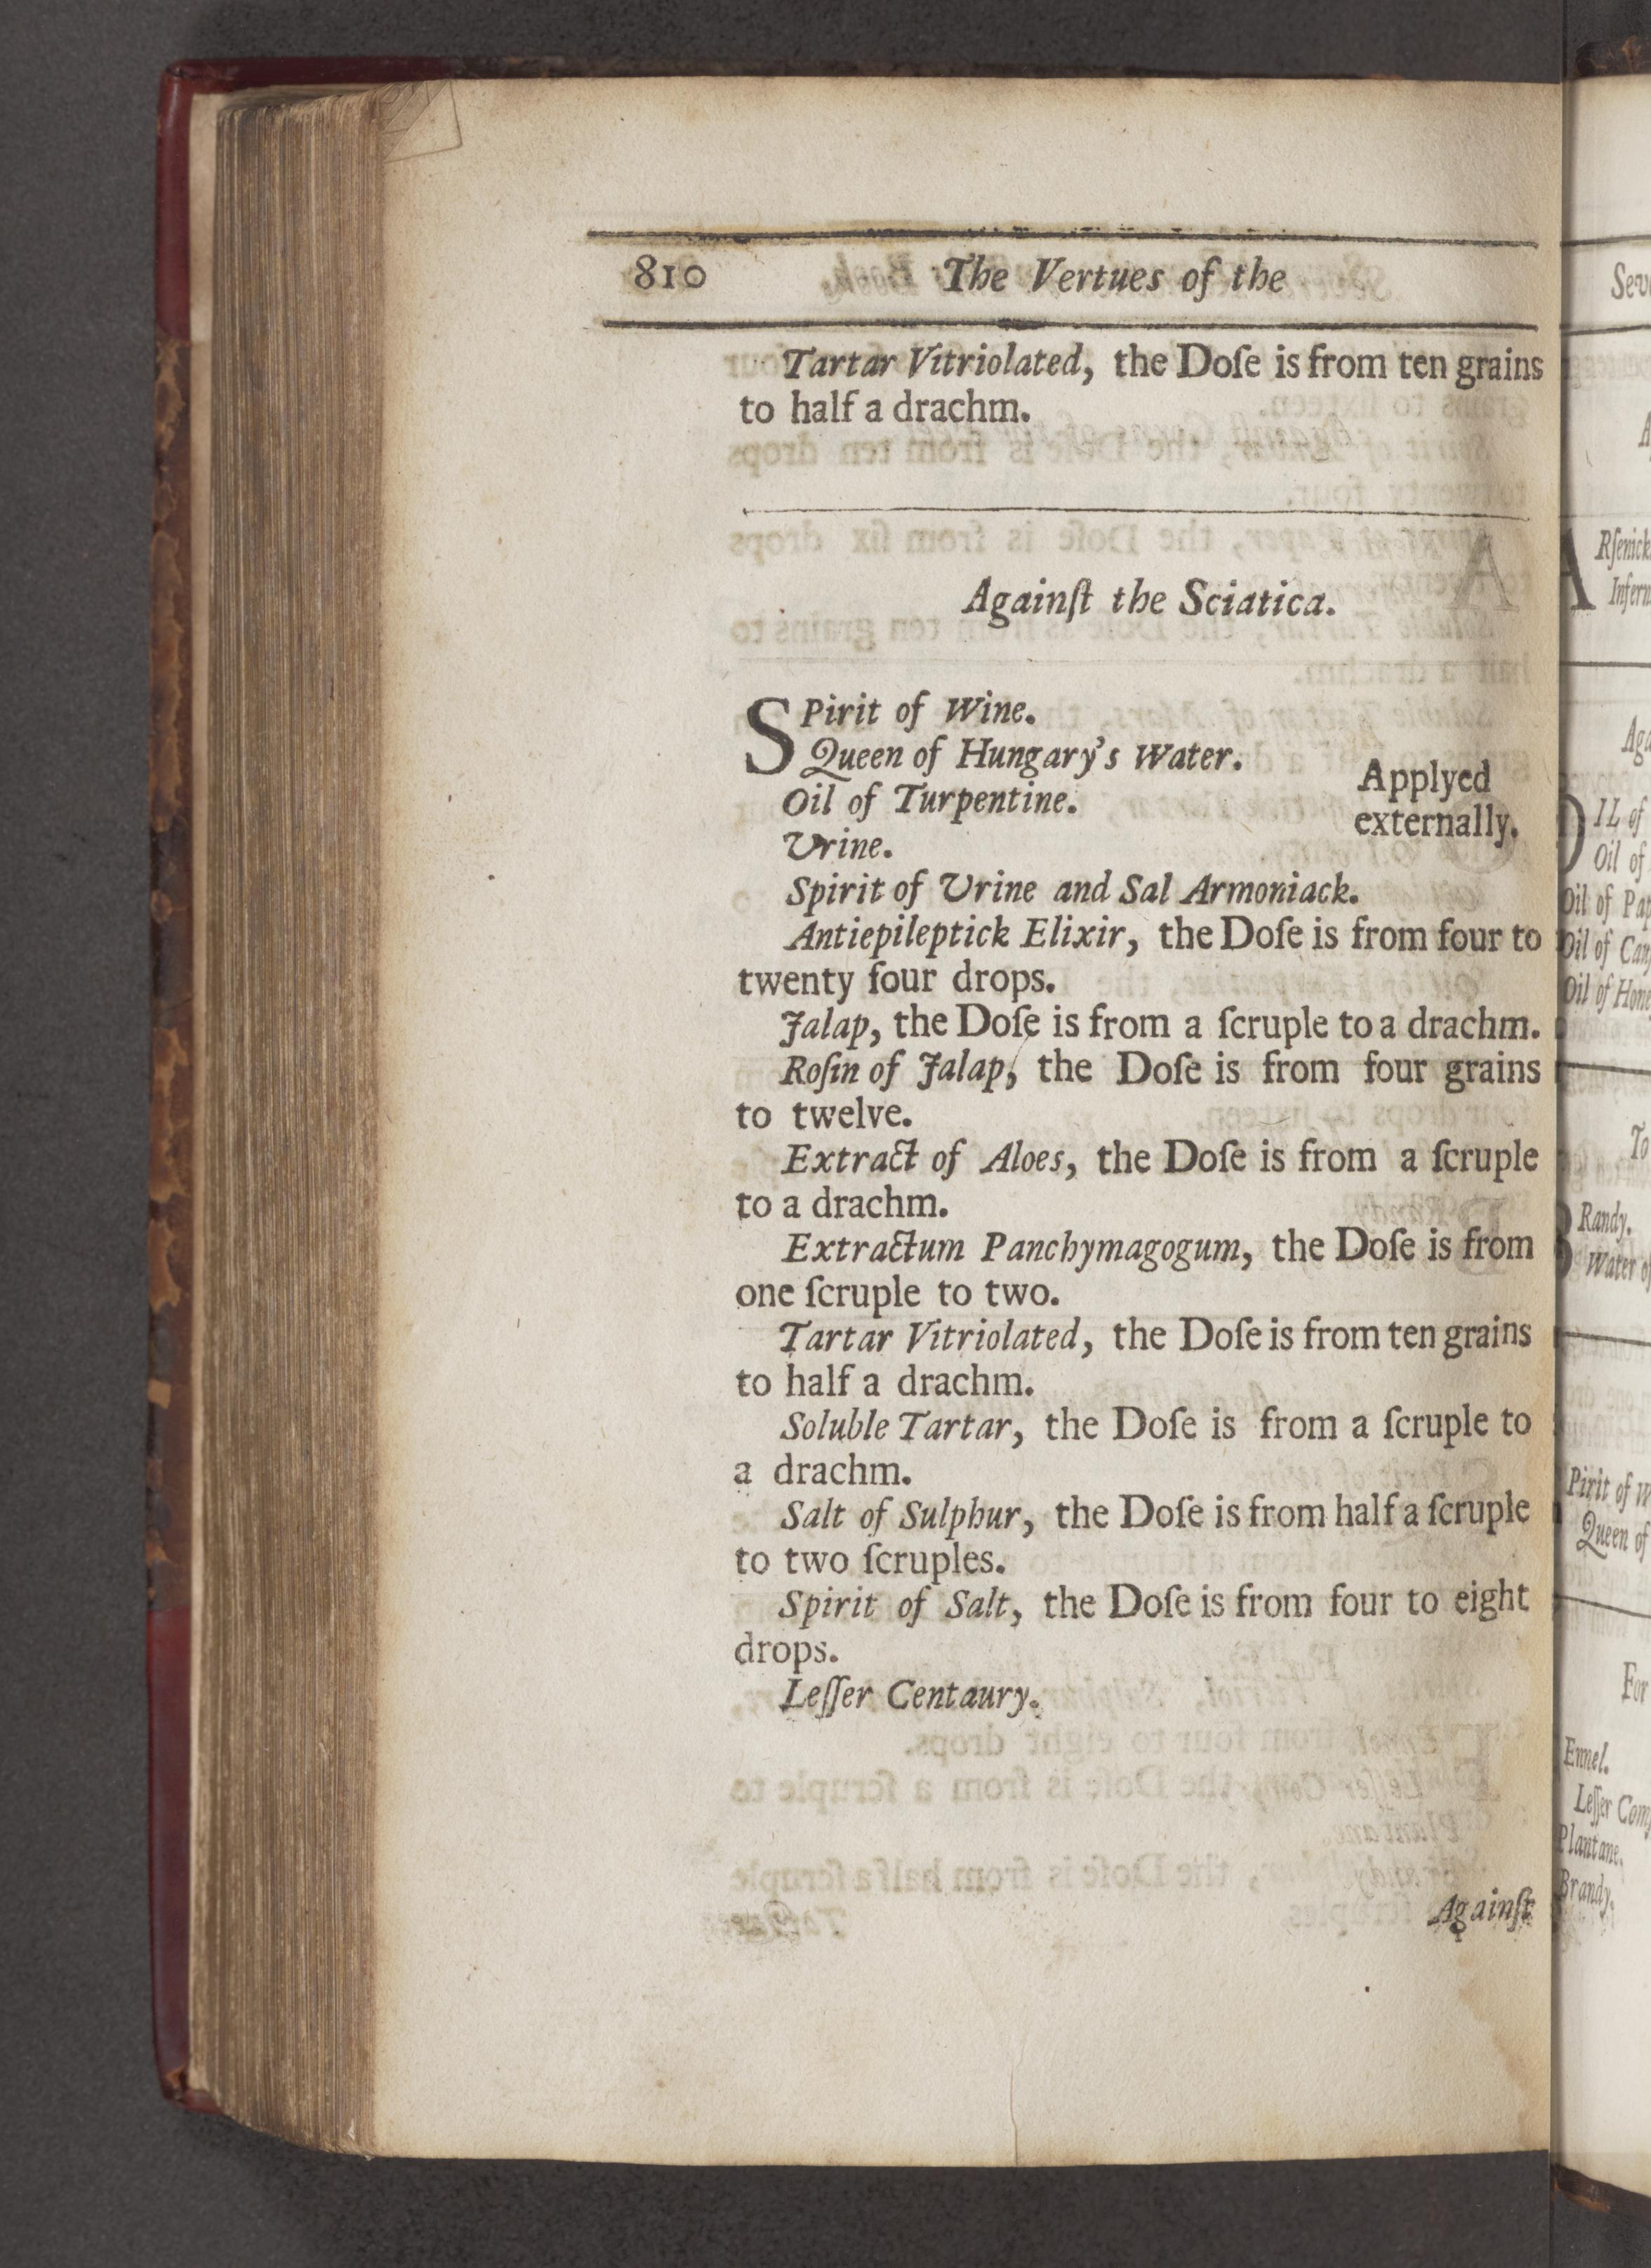 810 The Vertues of the
Tartar Vitriolated, the Doſe is from ten grains
to half a drachm.
Againſt the Sciatica.
SPirit of Wine.
Queen of Hungary's Water.
Applyed
Oil of Turpentine.
externally.
Urine.
Spirit of Urine and Sal Armoniack.
Antiepileptick Elixir, the Doſe is from four to
twenty four drops.
Jalap, the Doſe is from a ſcruple to a drachm.
Roſin of Jalap, the Doſe is from four grains
to twelve.
Extract of Aloes, the Doſe is from a ſcruple
to a drachm.
Extractum Panchymagogum, the Doſe is from
one ſcruple to two.
Tartar Vitriolated, the Doſe is from ten grains
to half a drachm.
Soluble Tartar, the Doſe is from a ſcruple to
a drachm.
Salt of Sulphur, the Doſe is from half a ſcruple
to two ſcruples.
Spirit of Salt, the Doſe is from four to eight
drops.
Leſſer Centaury.
Againſt
ARſenick
IL of
Oil of
Oil of
Oil of
Oil of
To
Randy.
Water
Pirit of
Queen of
For
Ennel.
Leſſer
Plantane.
Brandy.